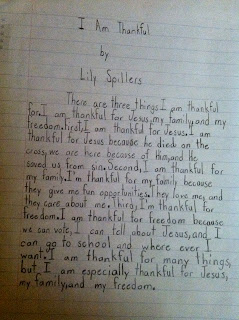 I Am Thankful
by
Lily Spillers
There are three things I am thankful
for. I am thankful for Jesus, my family, and my
freedom. First, I am thankful for Jesus. I am
thankful for Jesus because he died on the
cross, we are here because of Him, and He
saved us from sin. Second, I am thankful for
my family. I'm thankful for my family because
they give me fun opportunities, they love me, and
they care about me. Third, I'm thankful for
freedom. I am thankful for freedom because
we can vote, I can tell about Jesus, and I
can go to school and where ever I
want. I am thankful for many things,
but I am especially thankful for Jesus,
my family, and my freedom.